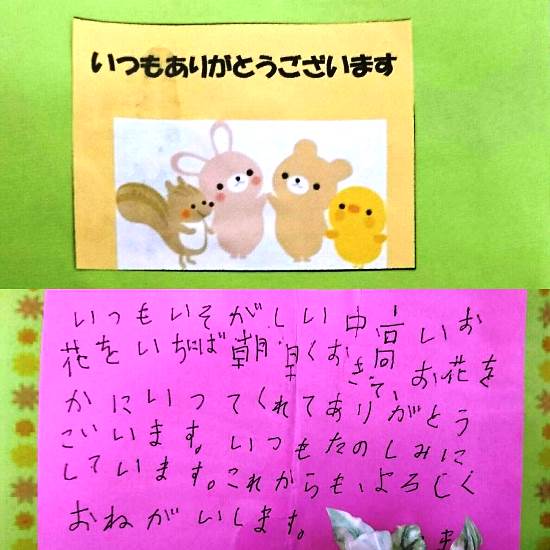 いつもありがとうございます
いつもいそがしい中高いお
花をいちば朝早くおきて、お花を
かにいってくれてありがとう
ごいます。いつもたのしみに
しています。これからも、よろしく
おねがいします。